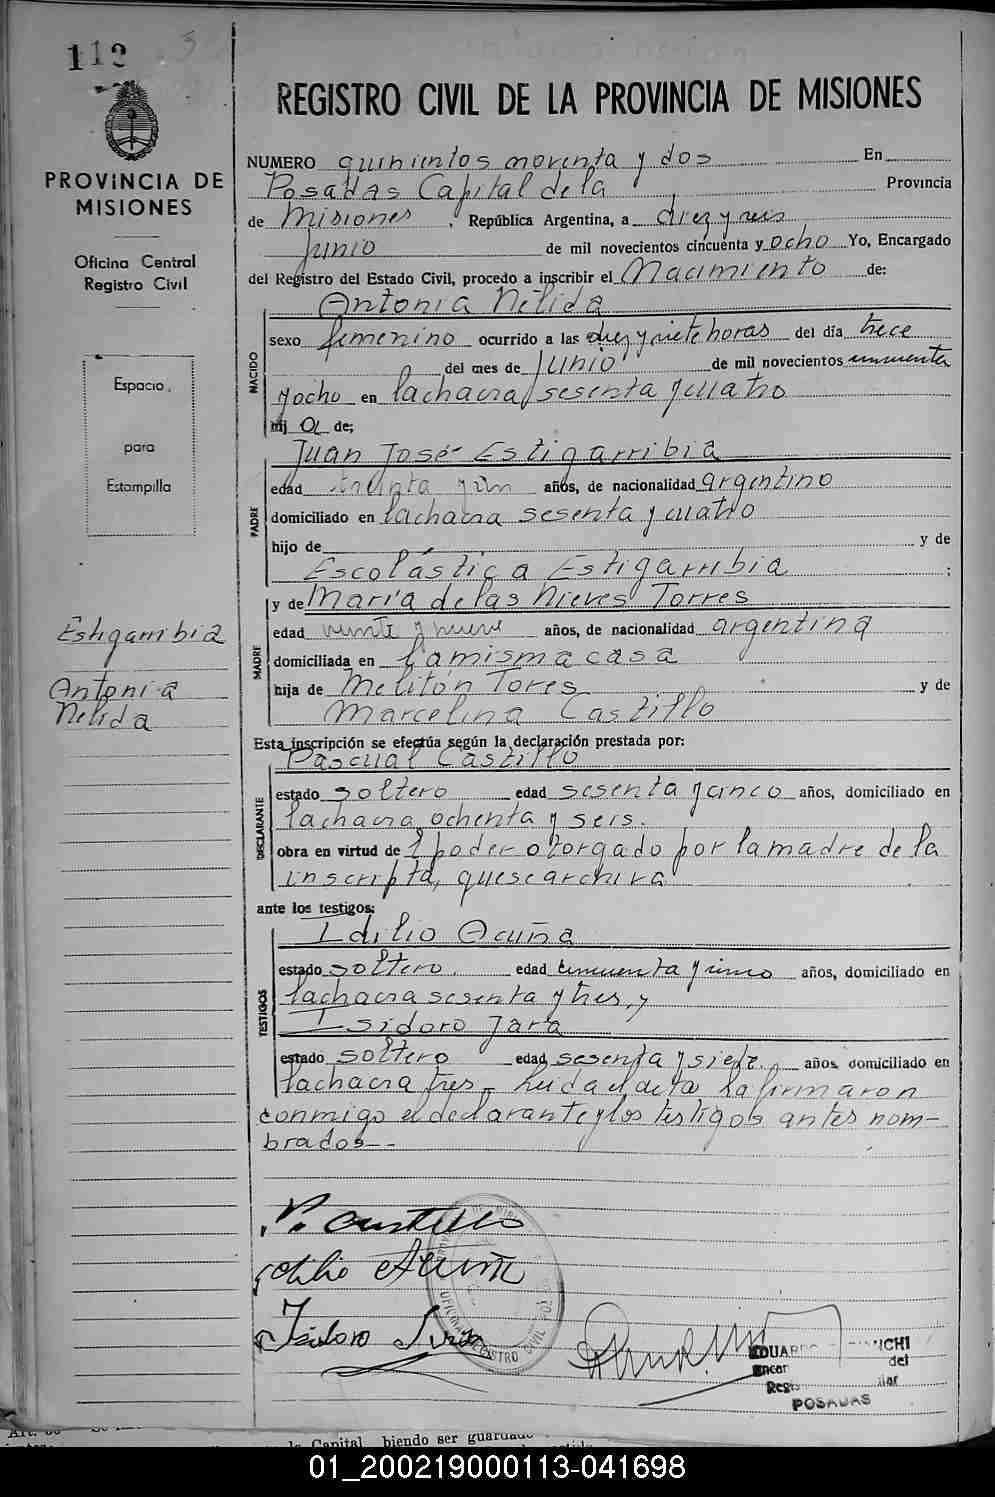 112
PROVINCIA DE
MISIONES
Oficina Central
Registro Civil
Espacio
para
Estampilla
Estigarribia
Antonia
Nélida
REGISTRO CIVIL DE LA PROVINCIA DE MISIONES
NUMERO quinientos noventa y dos En
Posadas Capital de la Provincia
de Misiones, República Argentina, a diez y seis
junio de mil novecientos cincuenta y ocho Yo, Encargado
del Registro del Estado Civil, procedo a inscribir el Nacimiento de:
Antonia Nélida
NACIDO
sexo femenino ocurrido a las diez y siete horas del día trece
del mes de Junio de mil novecientos cincuenta
y ocho en la chacra sesenta y cuatro
hij a de;
Juan José Estigarribia
PADRE
edad treinta y un años, de nacionalidad argentino
domiciliado en la chacra sesenta y cuatro
hijo de y de
Escolástica Estigarribia ;
y de María de las Nieves Torres
MADRE
edad veinte y nueve años, de nacionalidad argentina
domiciliada en la misma casa
hija de Melitón Tores y de
Marcelina Castillo
Esta inscripción se efectúa según la declaración prestada por:
Pascual Castillo
DECLARANTE
estado soltero edad sesenta y cinco años, domiciliado en
la chacra ochenta y seis.
obra en virtud de l poder otorgado por la madre de la
inscripta, que se archiva
ante los testigos:
Idilio Acuña
TESTIGOS
estado soltero. edad cincuenta y cinco años, domiciliado en
la chacra sesenta y tres, y
Isidoro Jara
estado soltero edad sesenta y siete. años, domiciliado en
la chacra tres - Leída el acta la firmaron
conmigo el declarante y los testigos antes nom-
brados--
P. Castillo
Idilio Acuña
Isidoro Jara
OFICINA REGISTRO CIVIL
EDUARDO NCHI
Encar del
Regis
POSADAS
la Capital, biendo ser guardado
01_200219000113-041698